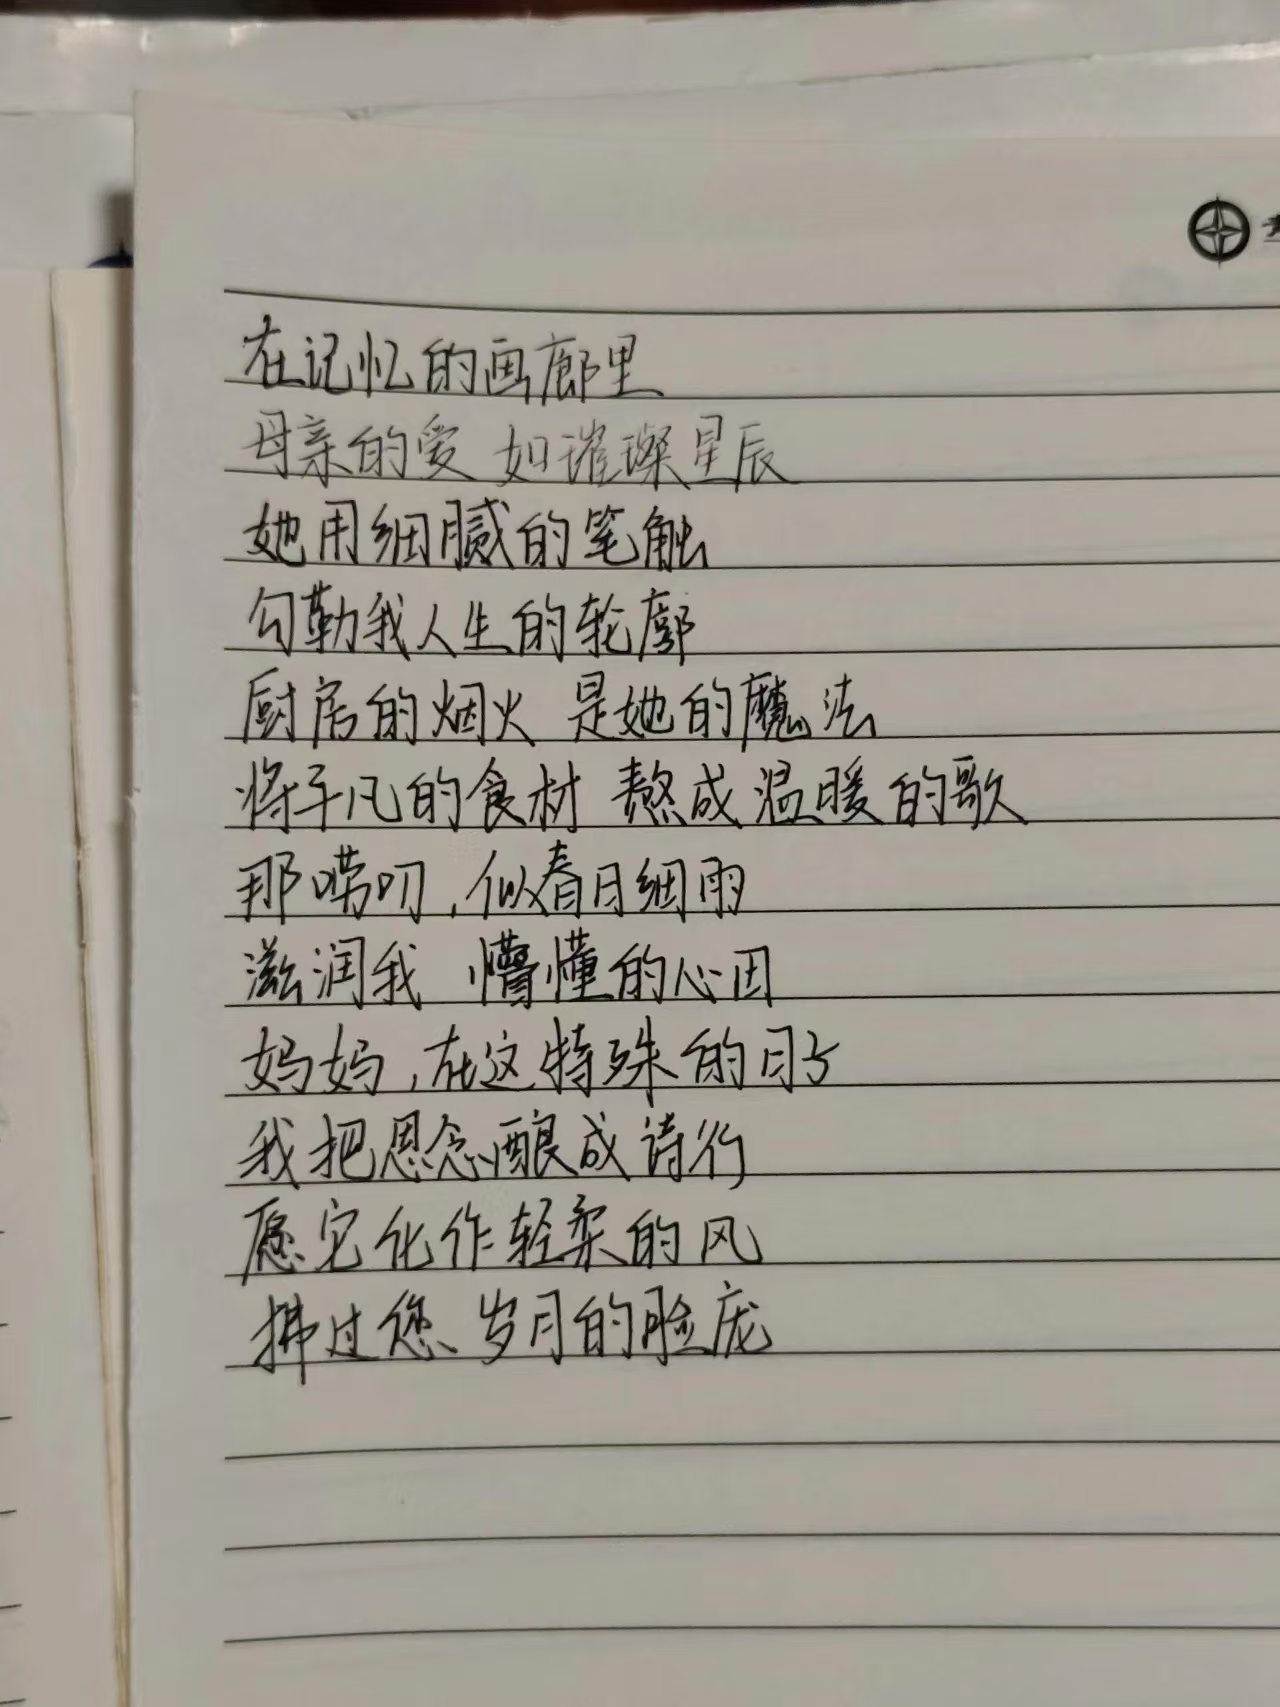 在记忆的画廊里
母亲的爱 如璀璨星辰
她用细腻的笔触
勾勒我人生的轮廓
厨房的烟火 是她的魔法
将平凡的食材 熬成温暖的歌
那唠叨,似春日细雨
滋润我 懵懂的心田
妈妈,在这特殊的日子
我把思念酿成诗行
愿它化作轻柔的风
拂过您、岁月的脸庞